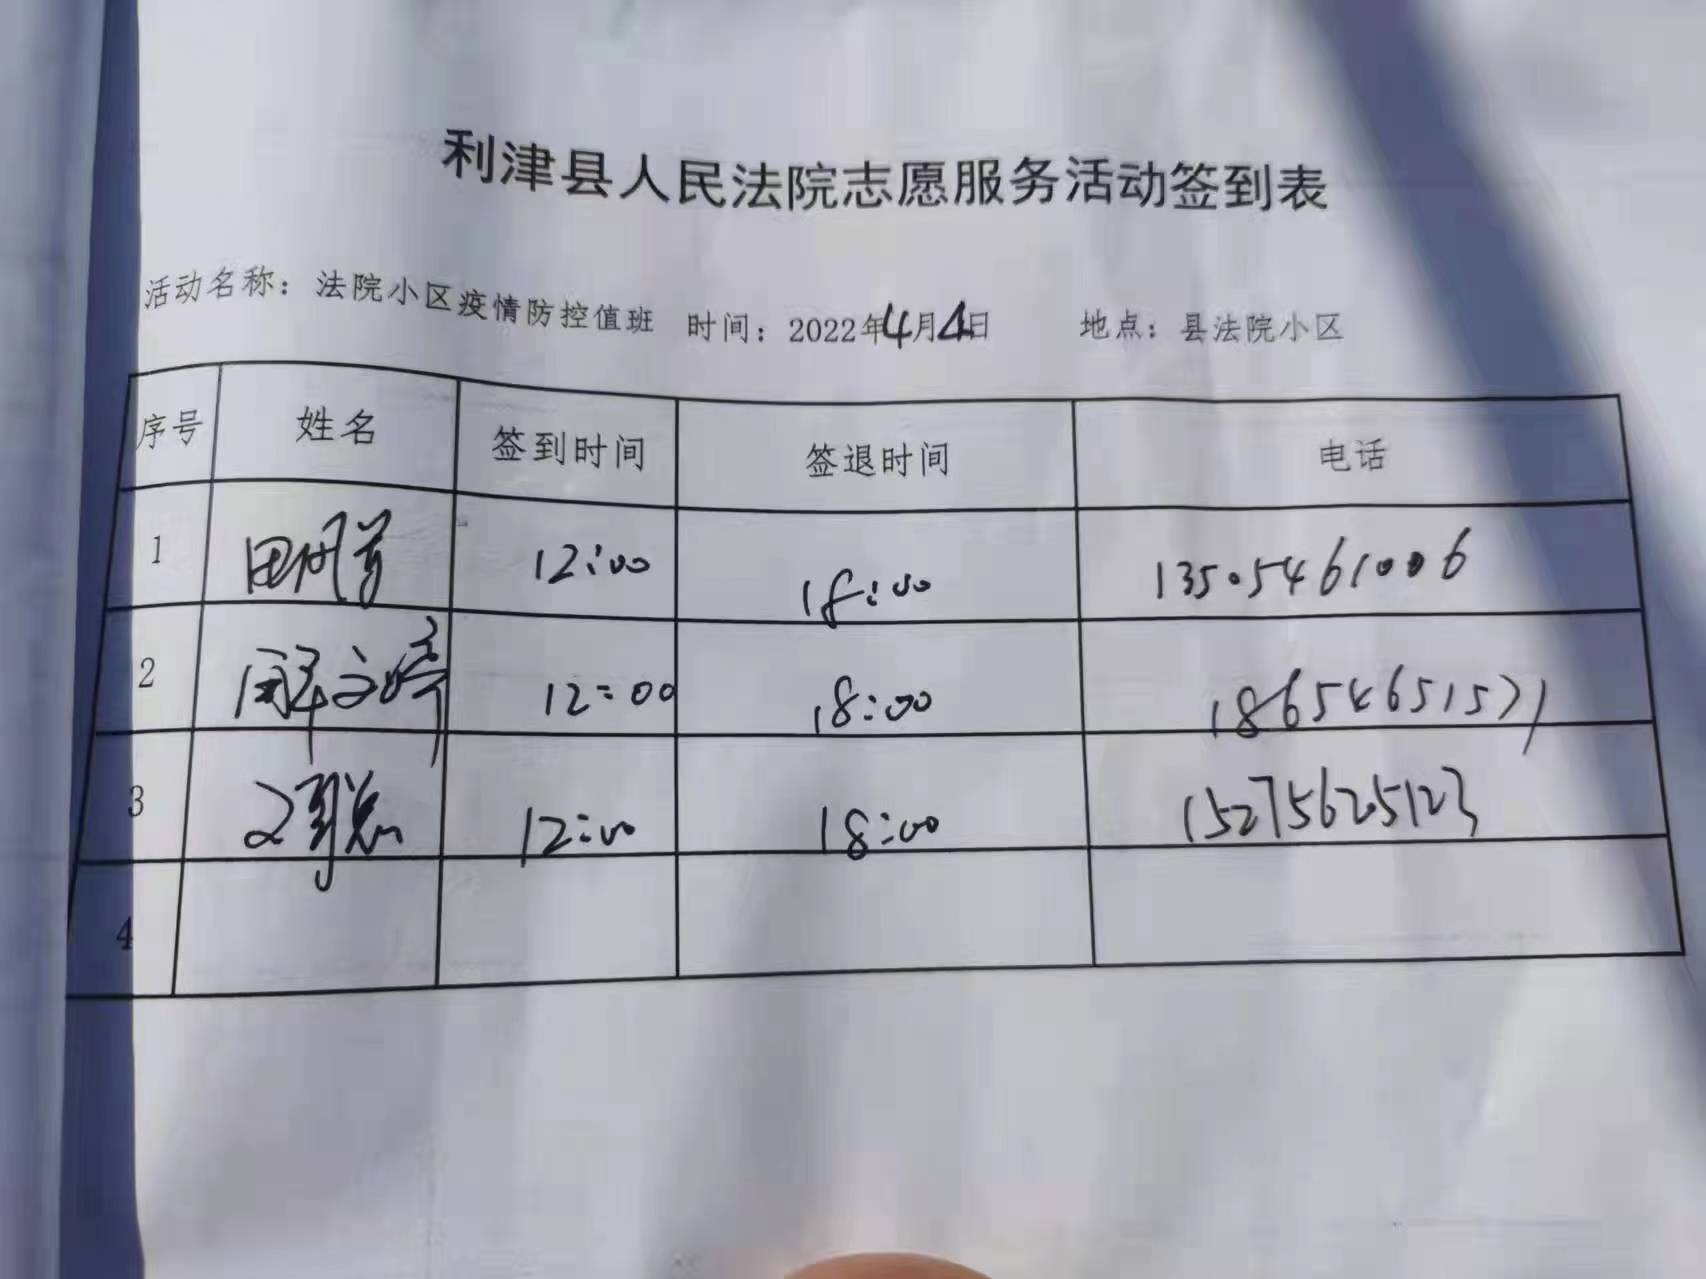 利津县人民法院志愿服务活动签到表
活动名称：法院小区疫情防控值班 时间：2022年4月4日 地点：县法院小区
序号 姓名 签到时间 签退时间 电话
1 12:00 18:00 13505461006
2 文婷 12:00 18:00 18654651571
3 12:00 18:00 15275625123
4